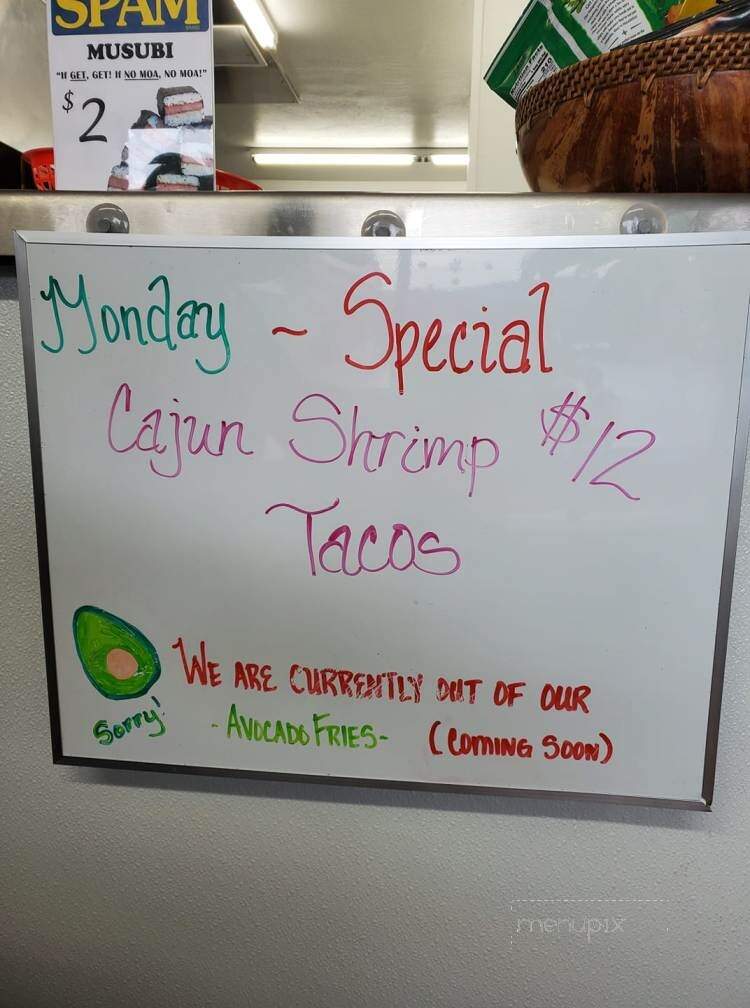 SPAM
MUSUBI
"If GET, GET! If NO MOA, NO MOA!"
$2
Monday ~ Special
Cajun Shrimp $12
Tacos
WE ARE CURRENTLY OUT OF OUR
Sorry! - AVOCADO FRIES - (COMING SOON)
menupix